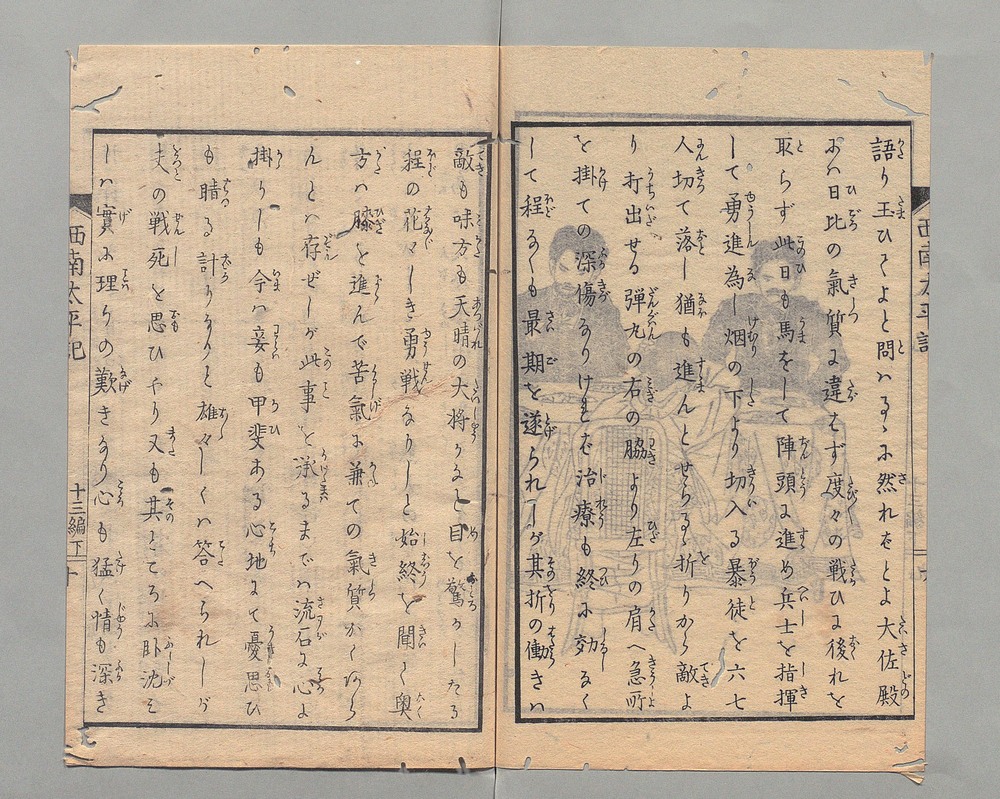 語り玉ひてよと問はるゝに然れをとよ大佐殿
にハ日比の氣質に違ハず度々の戰ひに後れを
取らず此日も馬をして陣頭に進め兵士を指揮
して勇進為し烟の下より切入る暴徒を六七
人切て落し猶も進んとせらるゝ折りから敵よ
り打出せる彈丸の右の脇より左りの肩へ急所
を掛ての深傷なりけれど治療も終に効なく
して程なくも最期を遂られしが其折の働きハ
敵も味方も天晴の大将かなと目を驚かしたる
程の花々しき勇戰なりしと始終を聞く奥
方ハ膝を進んで苦氣に兼ての氣質かくあら
んとハ存ぜしが此事を承るまでハ流石に心よ
掛りしも今ハ妾も甲斐ある心地にて憂思ひ
も晴る計りなりと雄々しくハ答へられしが
夫の戰死を思ひやり又も其ところに臥沈そ
しハ實に理りの歎きなり心も猛く情も深き
西南太平記
十三編下